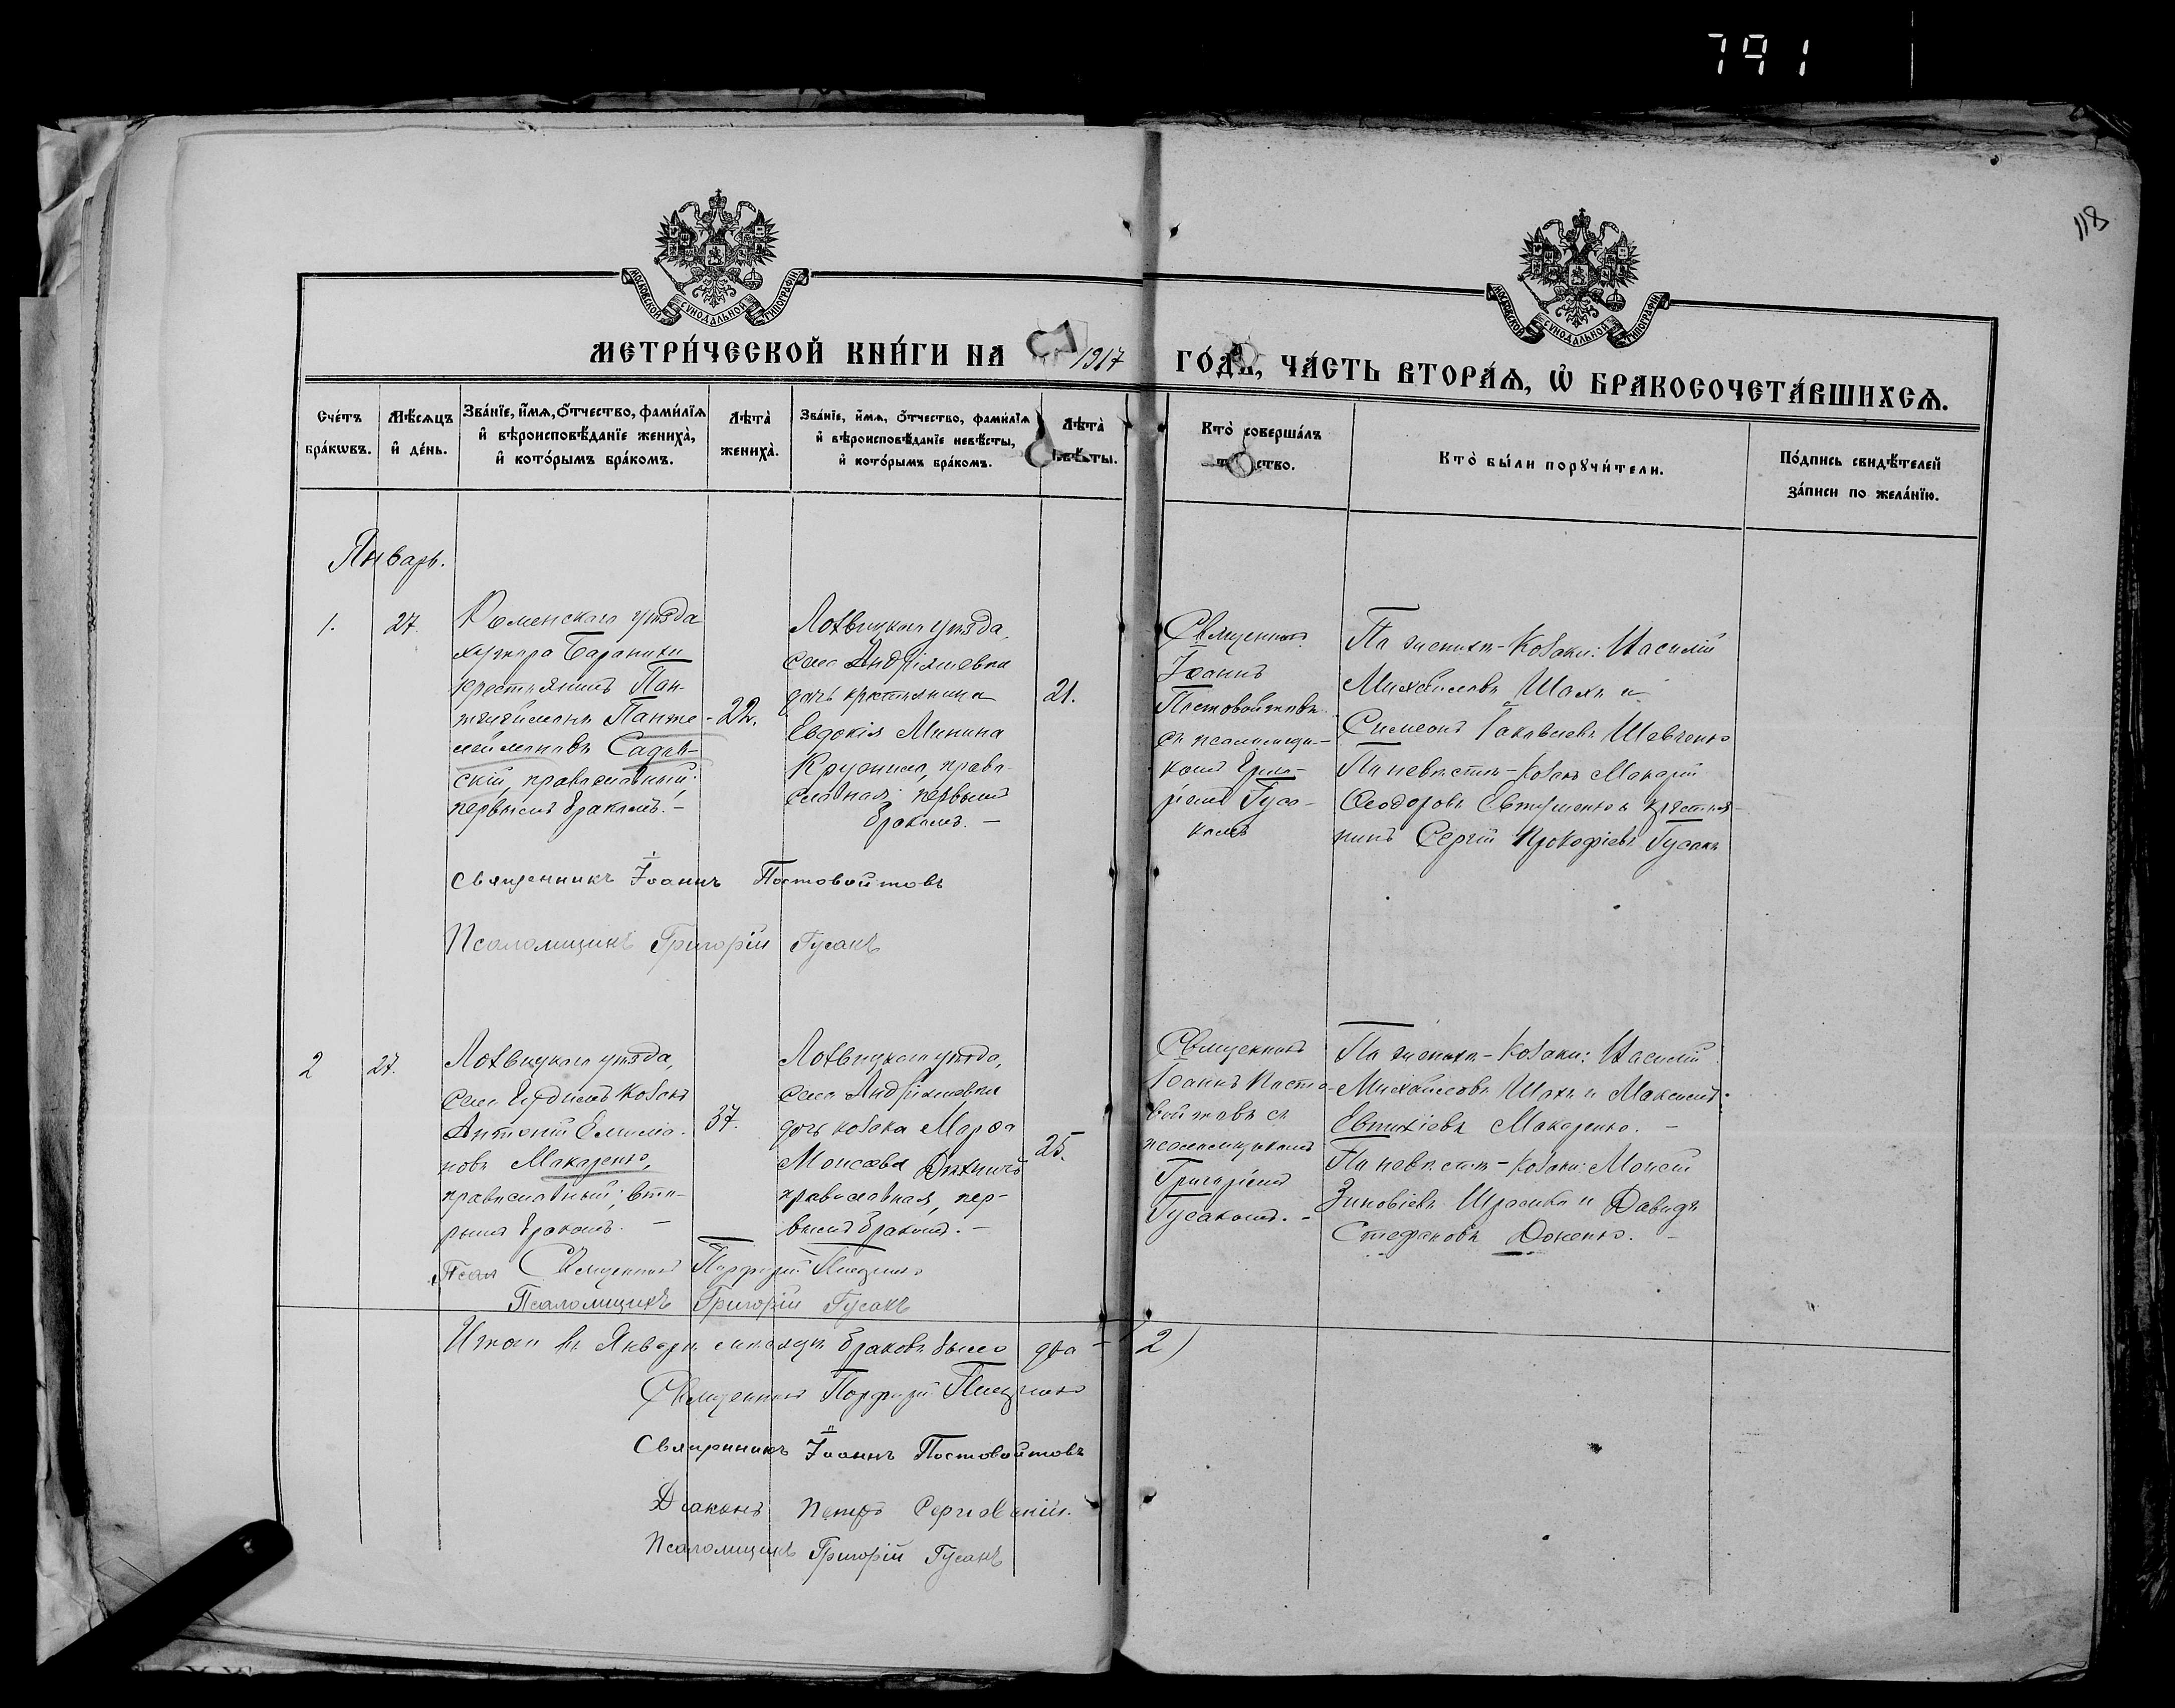 791
118
МОСКОВСКОЙ СѴНОДАЛЬНОЙ ТИПОГРАФІИ
МОСКОВСКОЙ СѴНОДАЛЬНОЙ ТИПОГРАФІИ
МЕТРИ́ЧЕСКОЙ КНИ́ГИ НА 1917 ГО́ДЪ, ЧА́СТЬ ВТОРА́Ѧ, Ѡ҆ БРАКОСОЧЕТА́ВШИХСѦ.
Сче́тъ бра́кѡвъ.
Мѣ́сѧцъ и҆ де́нь.
Зва́нїе, и҆́мѧ, ѻ҆́тчество, фами́лїѧ и҆ вѣроисповѣ́данїе жениха̀, и҆ кото́рымъ бра́комъ.
Лѣта̀ жениха̀.
Зва́нїе, и҆́мѧ, ѻ҆́тчество, фами́лїѧ и҆ вѣроисповѣ́данїе невѣ́сты, и҆ кото́рымъ бра́комъ.
Лѣта̀ невѣ́сты.
Кто̀ соверша́лъ
Кто̀ бы́ли порꙋчи́тели.
По́дпись свидѣ́телей за́писи по жела́нїю.
Январь.
1.
27.
Роменскаго уѣзда
хутора Баранихи
крестьянинъ Пан-
телеймонъ Панте-
леймоновъ
скій, православный;
первымъ бракомъ. –
22.
Лохвицкаго уѣзда,
села Андріяшевки
дочь крестьянина
Евдокія Минина
право-
славная; первымъ
бракомъ. –
21.
Священникъ
Іоаннъ
Постовойтовъ
съ псаломщи-
комъ Григо-
ріемъ Гуса-
комъ
По женихѣ – козаки: Василій
Михайловъ Шахъ и
Симеонъ Іаковлевъ Шевченко
По невѣстѣ – козакъ Макарій
Ѳеодоровъ Евтушенко и крестья-
нинъ Сергій Прокофіевъ Гусакъ
Священникъ Іоаннъ Постовойтовъ
Псаломщикъ Григорій Гусакъ
2
27.
Лохвицкаго уѣзда,
села козакъ
Антоній Емилiа-
новъ Макаренко,
православный; вто-
рымъ бракомъ. –
37.
Лохвицкаго уѣзда,
села Андріяшевки
дочь козака Марѳа
Моисеева
православная, пер-
вымъ бракомъ. –
25.
Священникъ
Іоаннъ Посто-
войтовъ съ
псаломщикомъ
Григоріемъ
Гусакомъ. –
По женихѣ – козаки: Василій
Михайловъ Шахъ и Максимъ
Евтихіевъ Макаренко. –
По невѣстѣ – козаки: Моисей
Зиновіевъ и Давидъ
Стефановъ Доненко. –
Псал Священникъ Порфирій
Псаломщикъ Григорій Гусакъ
Итого въ Январѣ мѣсяцѣ браковъ было два (2)
Священникъ Порфирій
Священникъ Іоаннъ Постовойтовъ
Діаконъ Петръ
Псаломщикъ Григорій Гусакъ